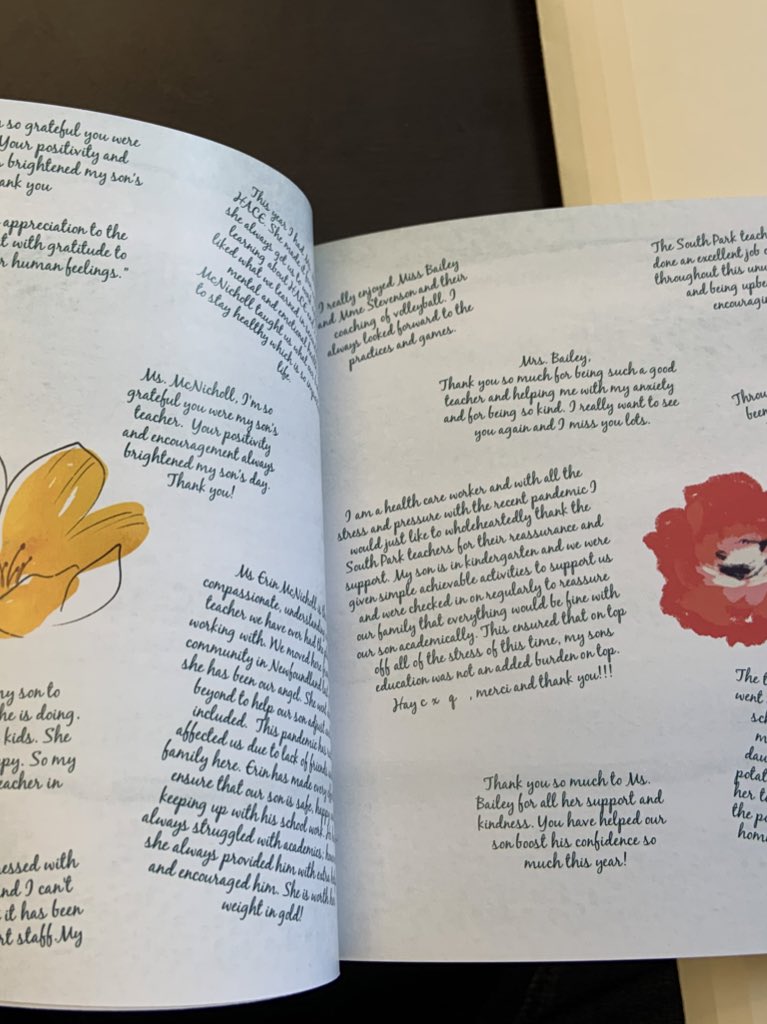 so grateful you were
Your positivity and
brightened my son's
ank you
appreciation to the
t with gratitude to
r human feelings."
This year I had
HACE. She made it
she always got us to
learning about HACE. I
liked what we learned in
mental and emotional
McNicholl taught us what
to stay healthy which is so
life.
Ms. McNicholl, I'm so
grateful you were my son's
teacher. Your positivity
and encouragement always
brightened my son's day.
Thank you!
Ms Erin McNicholl is
compassionate, understanding
teacher we have ever had the
working with. We moved here
community in Newfoundland
she has been our angel. She
beyond to help our son adjust
included. This pandemic has
affected us due to lack of friends
family here. Erin has made every
ensure that our son is safe, happy
keeping up with his school work.
always struggled with academics;
she always provided him with extra
and encouraged him. She is worth
weight in gold!
my son to
he is doing.
kids. She
py. So my
eacher in
essed with
nd I can't
it has been
rt staff.My
I really enjoyed Miss Bailey
and Mme Stevenson and their
coaching of volleyball. I
always looked forward to the
practices and games.
The South Park teach
done an excellent job
throughout this unu
and being upbe
encouragin
Mrs. Bailey,
Thank you so much for being such a good
teacher and helping me with my anxiety
and for being so kind. I really want to see
you again and I miss you lots.
Throu
been
I am a health care worker and with all the
stress and pressure with the recent pandemic I
would just like to wholeheartedly thank the
South Park teachers for their reassurance and
support. My son is in kindergarten and we were
given simple achievable activities to support us
and were checked in on regularly to reassure
our family that everything would be fine with
our son academically. This ensured that on top
off all of the stress of this time, my sons
education was not an added burden on top.
Hay c x q , merci and thank you!!!
The t
went
sc
m
dau
potat
her t
the p
hom
Thank you so much to Ms.
Bailey for all her support and
kindness. You have helped our
son boost his confidence so
much this year!